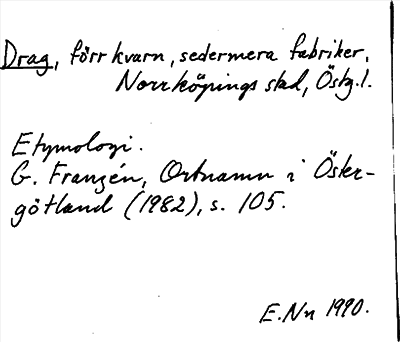 Drag, förr kvarn, sedermera fabriker,
Norrköpings stad, Östg.l.
Etymologi.
G. Franzén, Ortnamn i Öster-
götland (1982), s. 105.
E.Nn 1990.